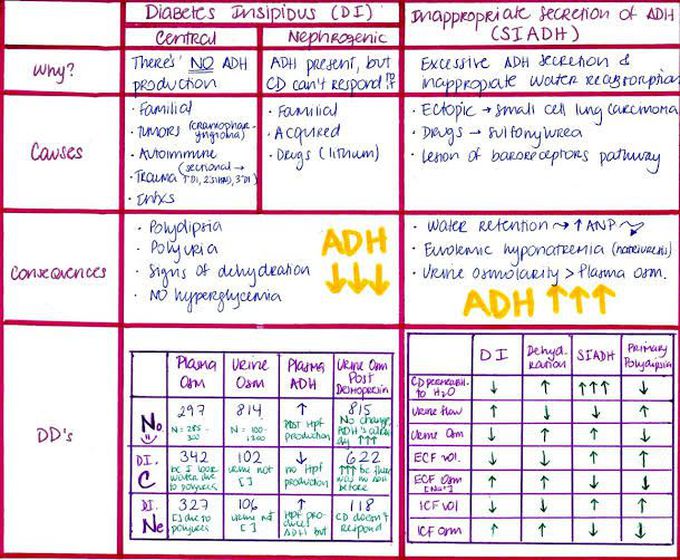 Diabetes Insipidus (DI)
Inappropriate Secretion of ADH
(SIADH)
Central
Nephrogenic
Why?
There's NO ADH
production
ADH present, but
CD can't respond
Excessive ADH secretion &
inappropiate water reabsorption
Causes
· Familial
· Tumors (craniophar-
yngioma)
· Autoimmune
· Trauma (sectional →
1°DI, 2°SIADH, 3°DI)
· Inxs
· Familial
· Acquired
· Drugs (lithium)
· Ectopic → small cell lung carcinoma
· Drugs → Sulfonylurea
· Lesion of baroreceptors pathway
Consequences
· Polydipsia
· Polyuria
· Signs of dehydration
· NO hyperglycemia
ADH
↓↓↓
· Water retention → ↑ ANP
· Euvolemic hyponatremia (natriuresis)
· Urine osmolarity > Plasma osm.
ADH ↑↑↑
DD's
Plasma
Osm
Urine
Osm
Plasma
ADH
Urine Osm
Post
Desmopressin
No.
297
N = 285-
300
814
N = 100-
1300
↑
Post Hpf
production
815
No change,
ADH's alrea-
dy ↑↑↑
DI.
C
342
bc I lose
water due
to polyuria
102
urine not
[ ]
↓
no Hpf
production
622
↑↑↑ bc there
was no ADH
before
DI.
Ne
327
[ ] due to
polyuria
106
urine not
[ ]
↑
Hpf pro-
duces
ADH but
118
CD doesn't
respond
DI
Dehyd-
ration
SIADH
Primary
Polydipsia
CD permeabil.
to H2O
↓ ↑ ↑↑↑ ↓
Urine flow
↑ ↓ ↓ ↑
Urine Osm
↓ ↑ ↑ ↓
ECF Vol.
↓ ↓ ↑ ↑
ECF Osm
[Na+]
↑ ↑ ↓ ↓
ICF Vol
↓ ↓ ↑ ↑
ICF Osm
↑ ↑ ↓ ↓